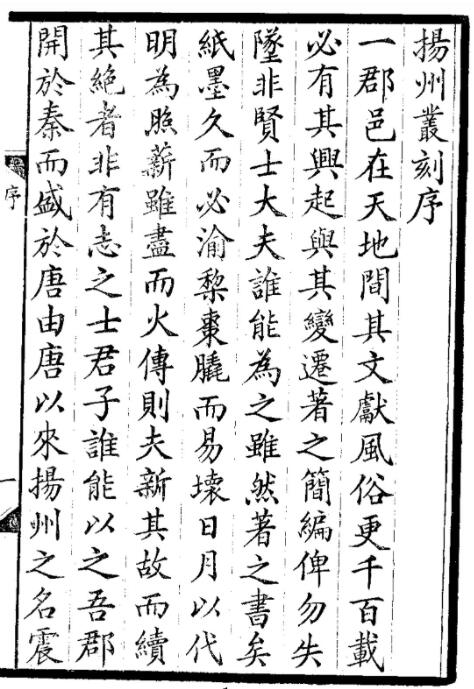 揚州叢刻序
一郡邑在天地間其文獻風俗更千百載
必有其興起與其變遷著之簡編俾勿失
墜非賢士大夫誰能為之雖然著之書矣
紙墨久而必渝棃棗膬而易壞日月以代
明為照薪雖盡而火傳則夫新其故而續
其絶者非有志之士君子誰能以之吾郡
開於秦而盛於唐由唐以來揚州之名震
序
一